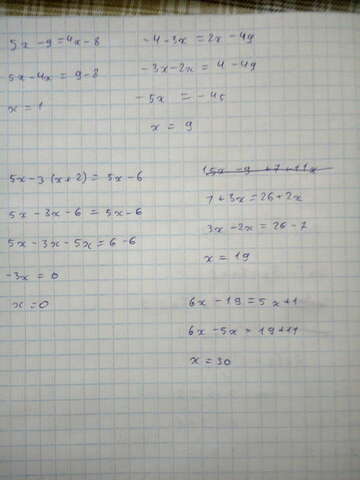 5x - 9 = 4x - 8
5x - 4x = 9 - 8
x = 1
-4 - 3x = 2x - 49
-3x - 2x = 4 - 49
-5x = -45
x = 9
5x - 3(x + 2) = 5x - 6
5x - 3x - 6 = 5x - 6
5x - 3x - 5x = 6 - 6
-3x = 0
x = 0
7 + 3x = 26 + 2x
3x - 2x = 26 - 7
x = 19
6x - 19 = 5x + 11
6x - 5x = 19 + 11
x = 30